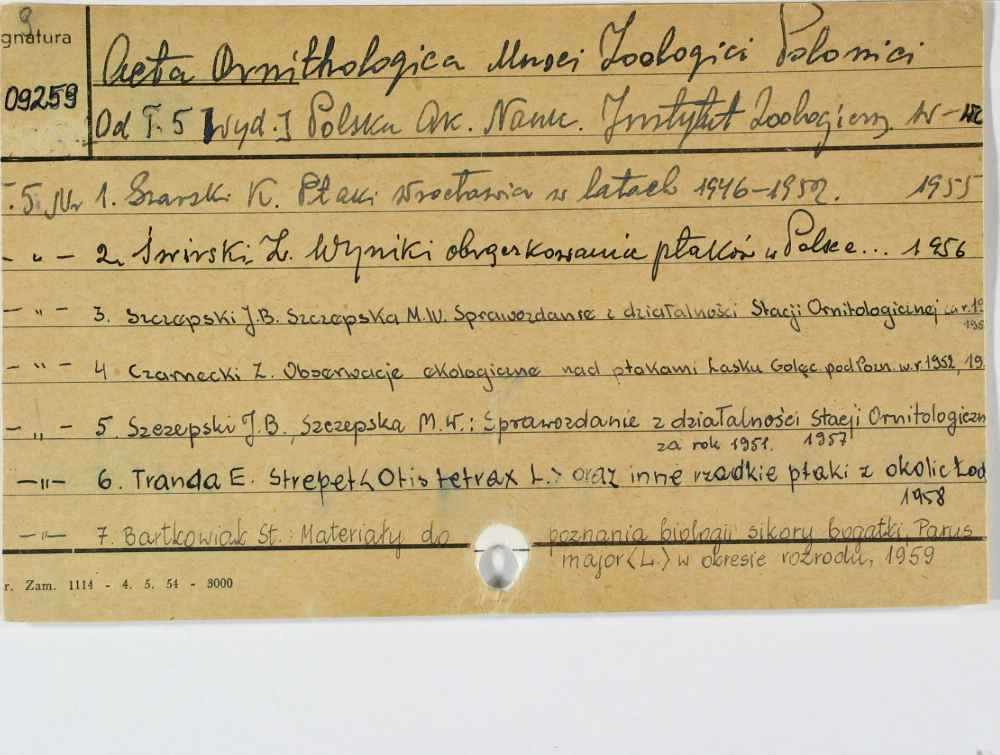 9
gnatura
09259
Acta Ornithologica Musei Zoologici Polonici
Od T. 5 [wyd.] Polska Ak. Nauk. Instytut Zoologiczn. W-wa
T. 5 Nr 1. Szarski K. Ptaki Wrocławia w latach 1946-1952. 1955
- " - 2. Świrski, Z. Wyniki obrączkowania ptaków w Polsce... 1956
- " - 3. Szczepski J.B. Szczepska M.W. Sprawozdanie z działalności Stacji Ornitologicznej za r. 19
195
- " - 4 Czarnecki Z. Obserwacje ekologiczne nad ptakami Lasku Golęc pod Pozn. w.r. 1952, 19.
- " - 5. Szczepski J.B., Szczepska M.W.: Sprawozdanie z działalności Stacji Ornitologiczn
za rok 1951. 1957
- " - 6. Tranda E. Strepet <Otis tetrax L.> oraz inne rzadkie ptaki z okolic Łod
1958
- " - 7. Bartkowiak St.: Materiały do poznania biologii sikory bogatki, Parus
major <L.> w okresie rozrodu, 1959
r. Zam. 1114 - 4. 5. 54 - 3000